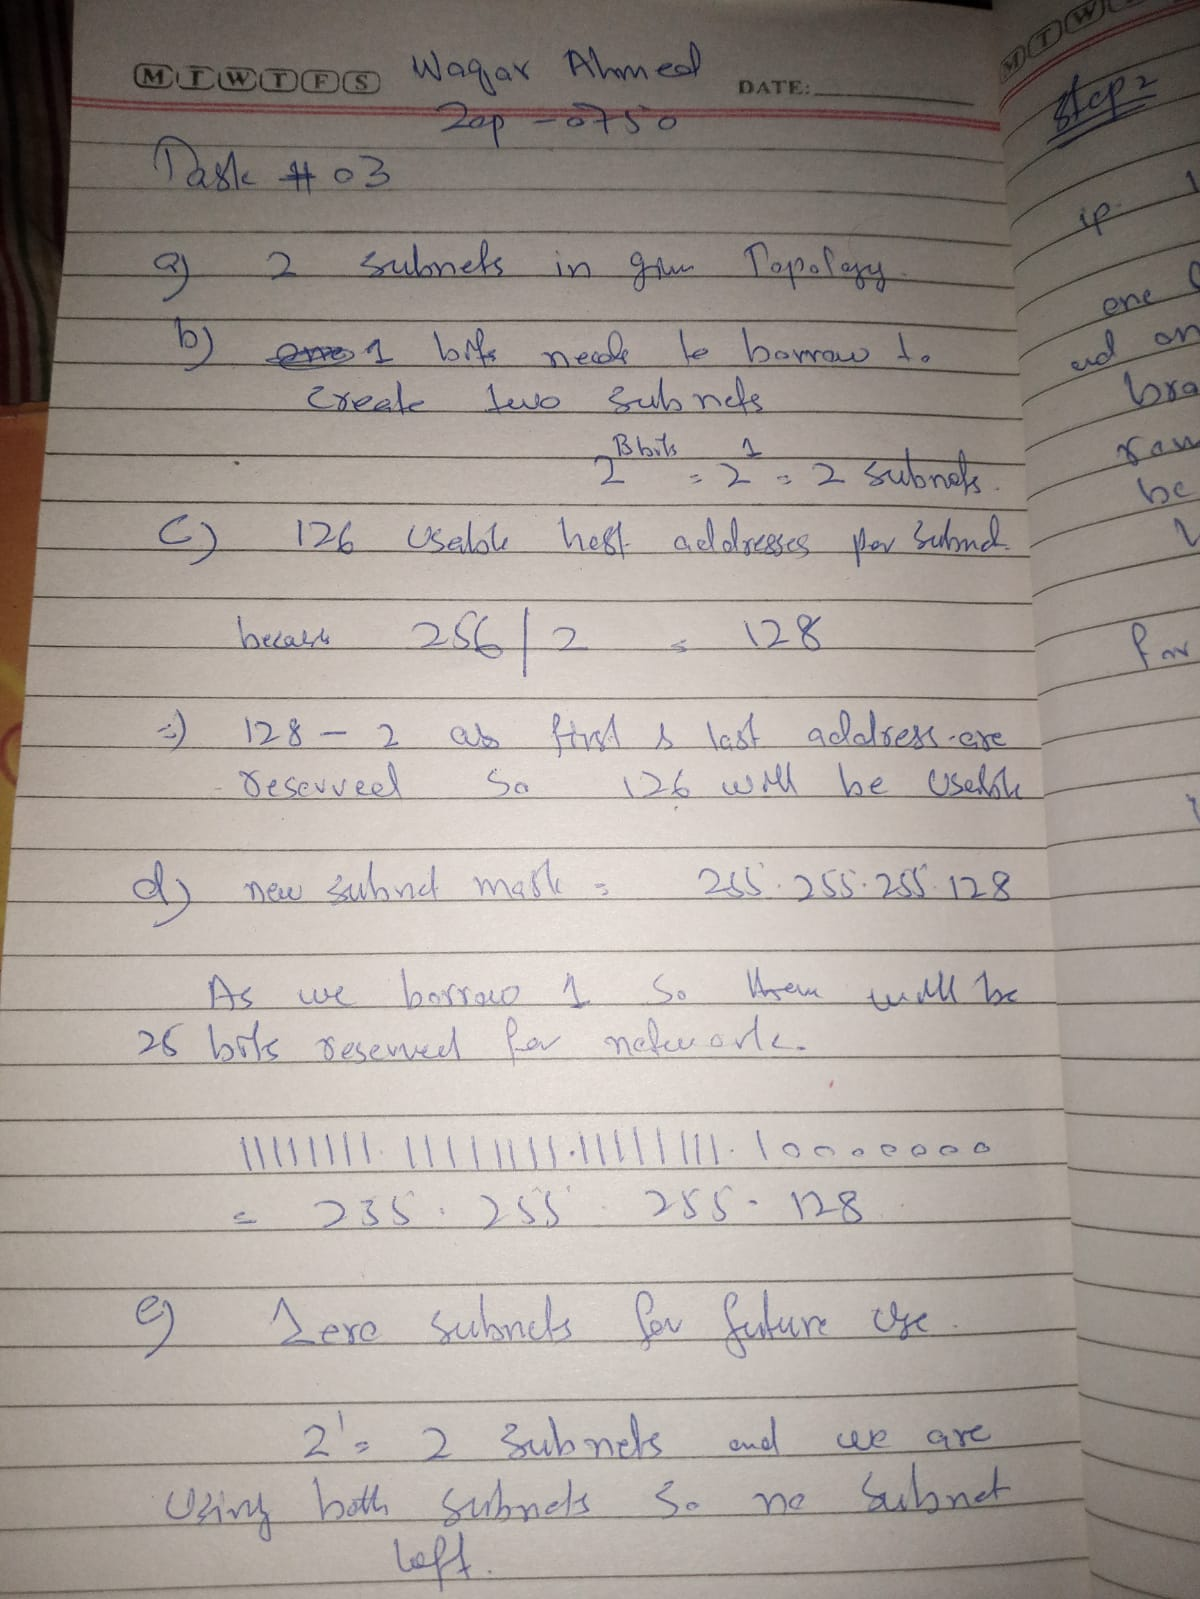 M T W T F S Waqar Ahmed DATE:
20p-0750
Task # 03
a) 2 subnets in given Topology.
b) 1 bits needs to borrow to
create two subnets
2^Bbits = 2^1 = 2 subnets.
c) 126 Usable host addresses per Subnet.
because 256/2 = 128
=) 128 - 2 as first & last address are
reserved So 126 will be Usable
d) new subnet mask = 255.255.255.128
As we borrow 1 So there will be
25 bits reserved for network.
11111111.11111111.11111111.10000000
= 255.255.255.128
e) Zero subnets for future use.
2^1 = 2 subnets and we are
Using both subnets So no Subnet
left.
M T W
Step 2
ip.
one
and
bra
be
for